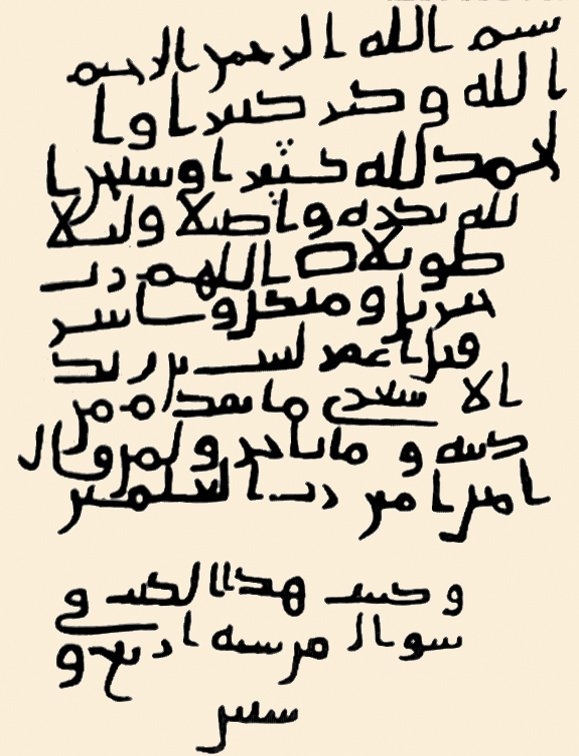 بسم الله الرحمن الرحيم
الله وكبر كبيرا وا
لحمد لله كثيرا وسبحن ا
لله بكرة واصيلا وليلا
طويلا اللهم رب
جبريل وميكل واسر
فيل اغفر لثبت بن يزيد
الاشعري ما تقدم من
ذنبه وما تاخر ولمن قال
امين امين رب العلمين
وكتبت هذا الكتب في
شوال من سنه اربع و
ستين